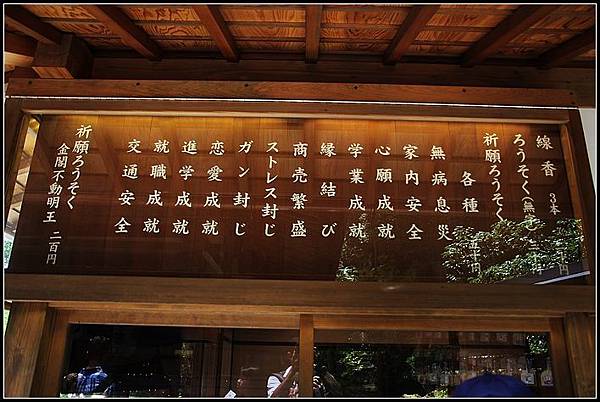 線香 3本
ろうそく
祈願ろうそく
各種
無病息災
家内安全
心願成就
学業成就
縁結び
商売繁盛
ストレス封じ
ガン封じ
恋愛成就
進学成就
就職成就
交通安全
祈願ろうそく
金閣不動明王 二百円